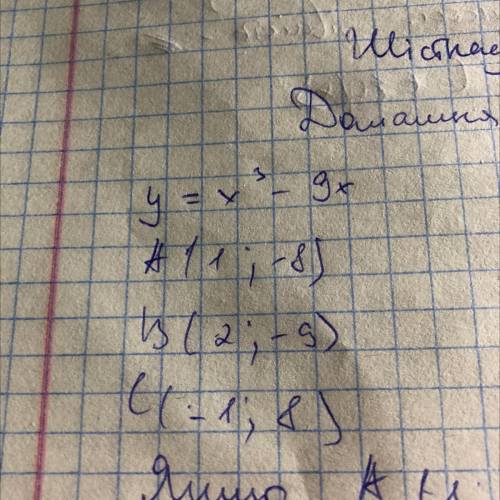 Шістнад
Домашня
y = x³ - 9x
A (1; -8)
B (2; -9)
C (-1; 8)
Якщо A (1;